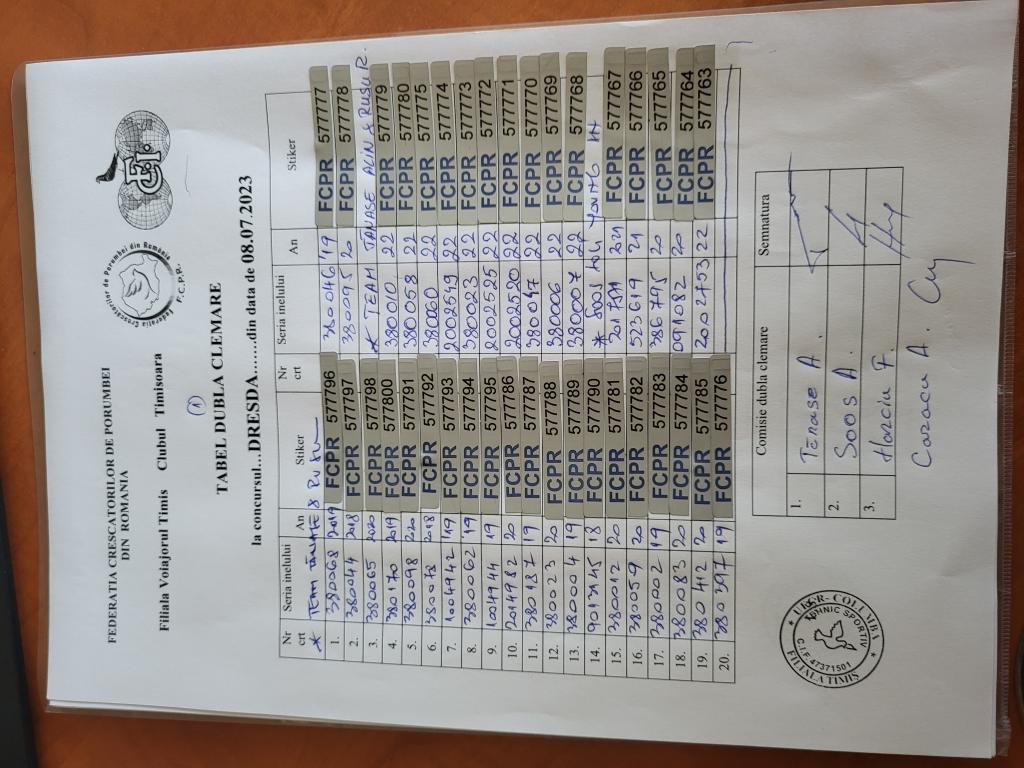 FEDERATIA CRESCATORILOR DE PORUMBEI
DIN ROMANIA
Federatia Crescatorilor de Porumbei din România F.C.P.R.
FCI
Filiala Voiajorul Timis Clubul Timisoara
1
TABEL DUBLA CLEMARE
la concursul...DRESDA........din data de 08.07.2023
Nr crt Seria inelului An Stiker Nr crt Seria inelului An Stiker
* TEAM TANASE & RUSU
1. 380068 2019 FCPR 577796 380046 '19 FCPR 577777
2. 380044 2018 FCPR 577797 380095 20 FCPR 577778
3. 380065 2020 FCPR 577798 * TEAM TANASE ALIN & RUSU R.
4. 380170 2019 FCPR 577800 380010 22 FCPR 577779
5. 380098 2020 FCPR 577791 380058 22 FCPR 577780
6. 380078 2018 FCPR 577792 380060 22 FCPR 577775
7. 1004942 19 FCPR 577793 2002549 22 FCPR 577774
8. 380062 19 FCPR 577794 380023 22 FCPR 577773
9. 1001944 19 FCPR 577795 2002525 22 FCPR 577772
10. 2014982 20 FCPR 577786 2002520 22 FCPR 577771
11. 380187 19 FCPR 577787 380047 22 FCPR 577770
12. 380023 20 FCPR 577788 380006 22 FCPR 577769
13. 380004 19 FCPR 577789 380007 22 FCPR 577768
14. 9013145 18 FCPR 577790 * SOOS
15. 380012 20 FCPR 577781 21 FCPR 577767
16. 380059 20 FCPR 577782 523619 21 FCPR 577766
17. 380002 19 FCPR 577783 386795 20 FCPR 577765
18. 380083 20 FCPR 577784 0911082 20 FCPR 577764
19. 380412 20 FCPR 577785 2002453 22 FCPR 577763
20. 380397 19 FCPR 577776
Comisie dubla clemare Semnatura
1. Tanase A.
2. Soos A.
3. Harciu F.
Caraca A.
UECR- COLUMBA
TEHNIC SPORTIV
C.I.F. 47371501
* FILIALA TIMIȘ *